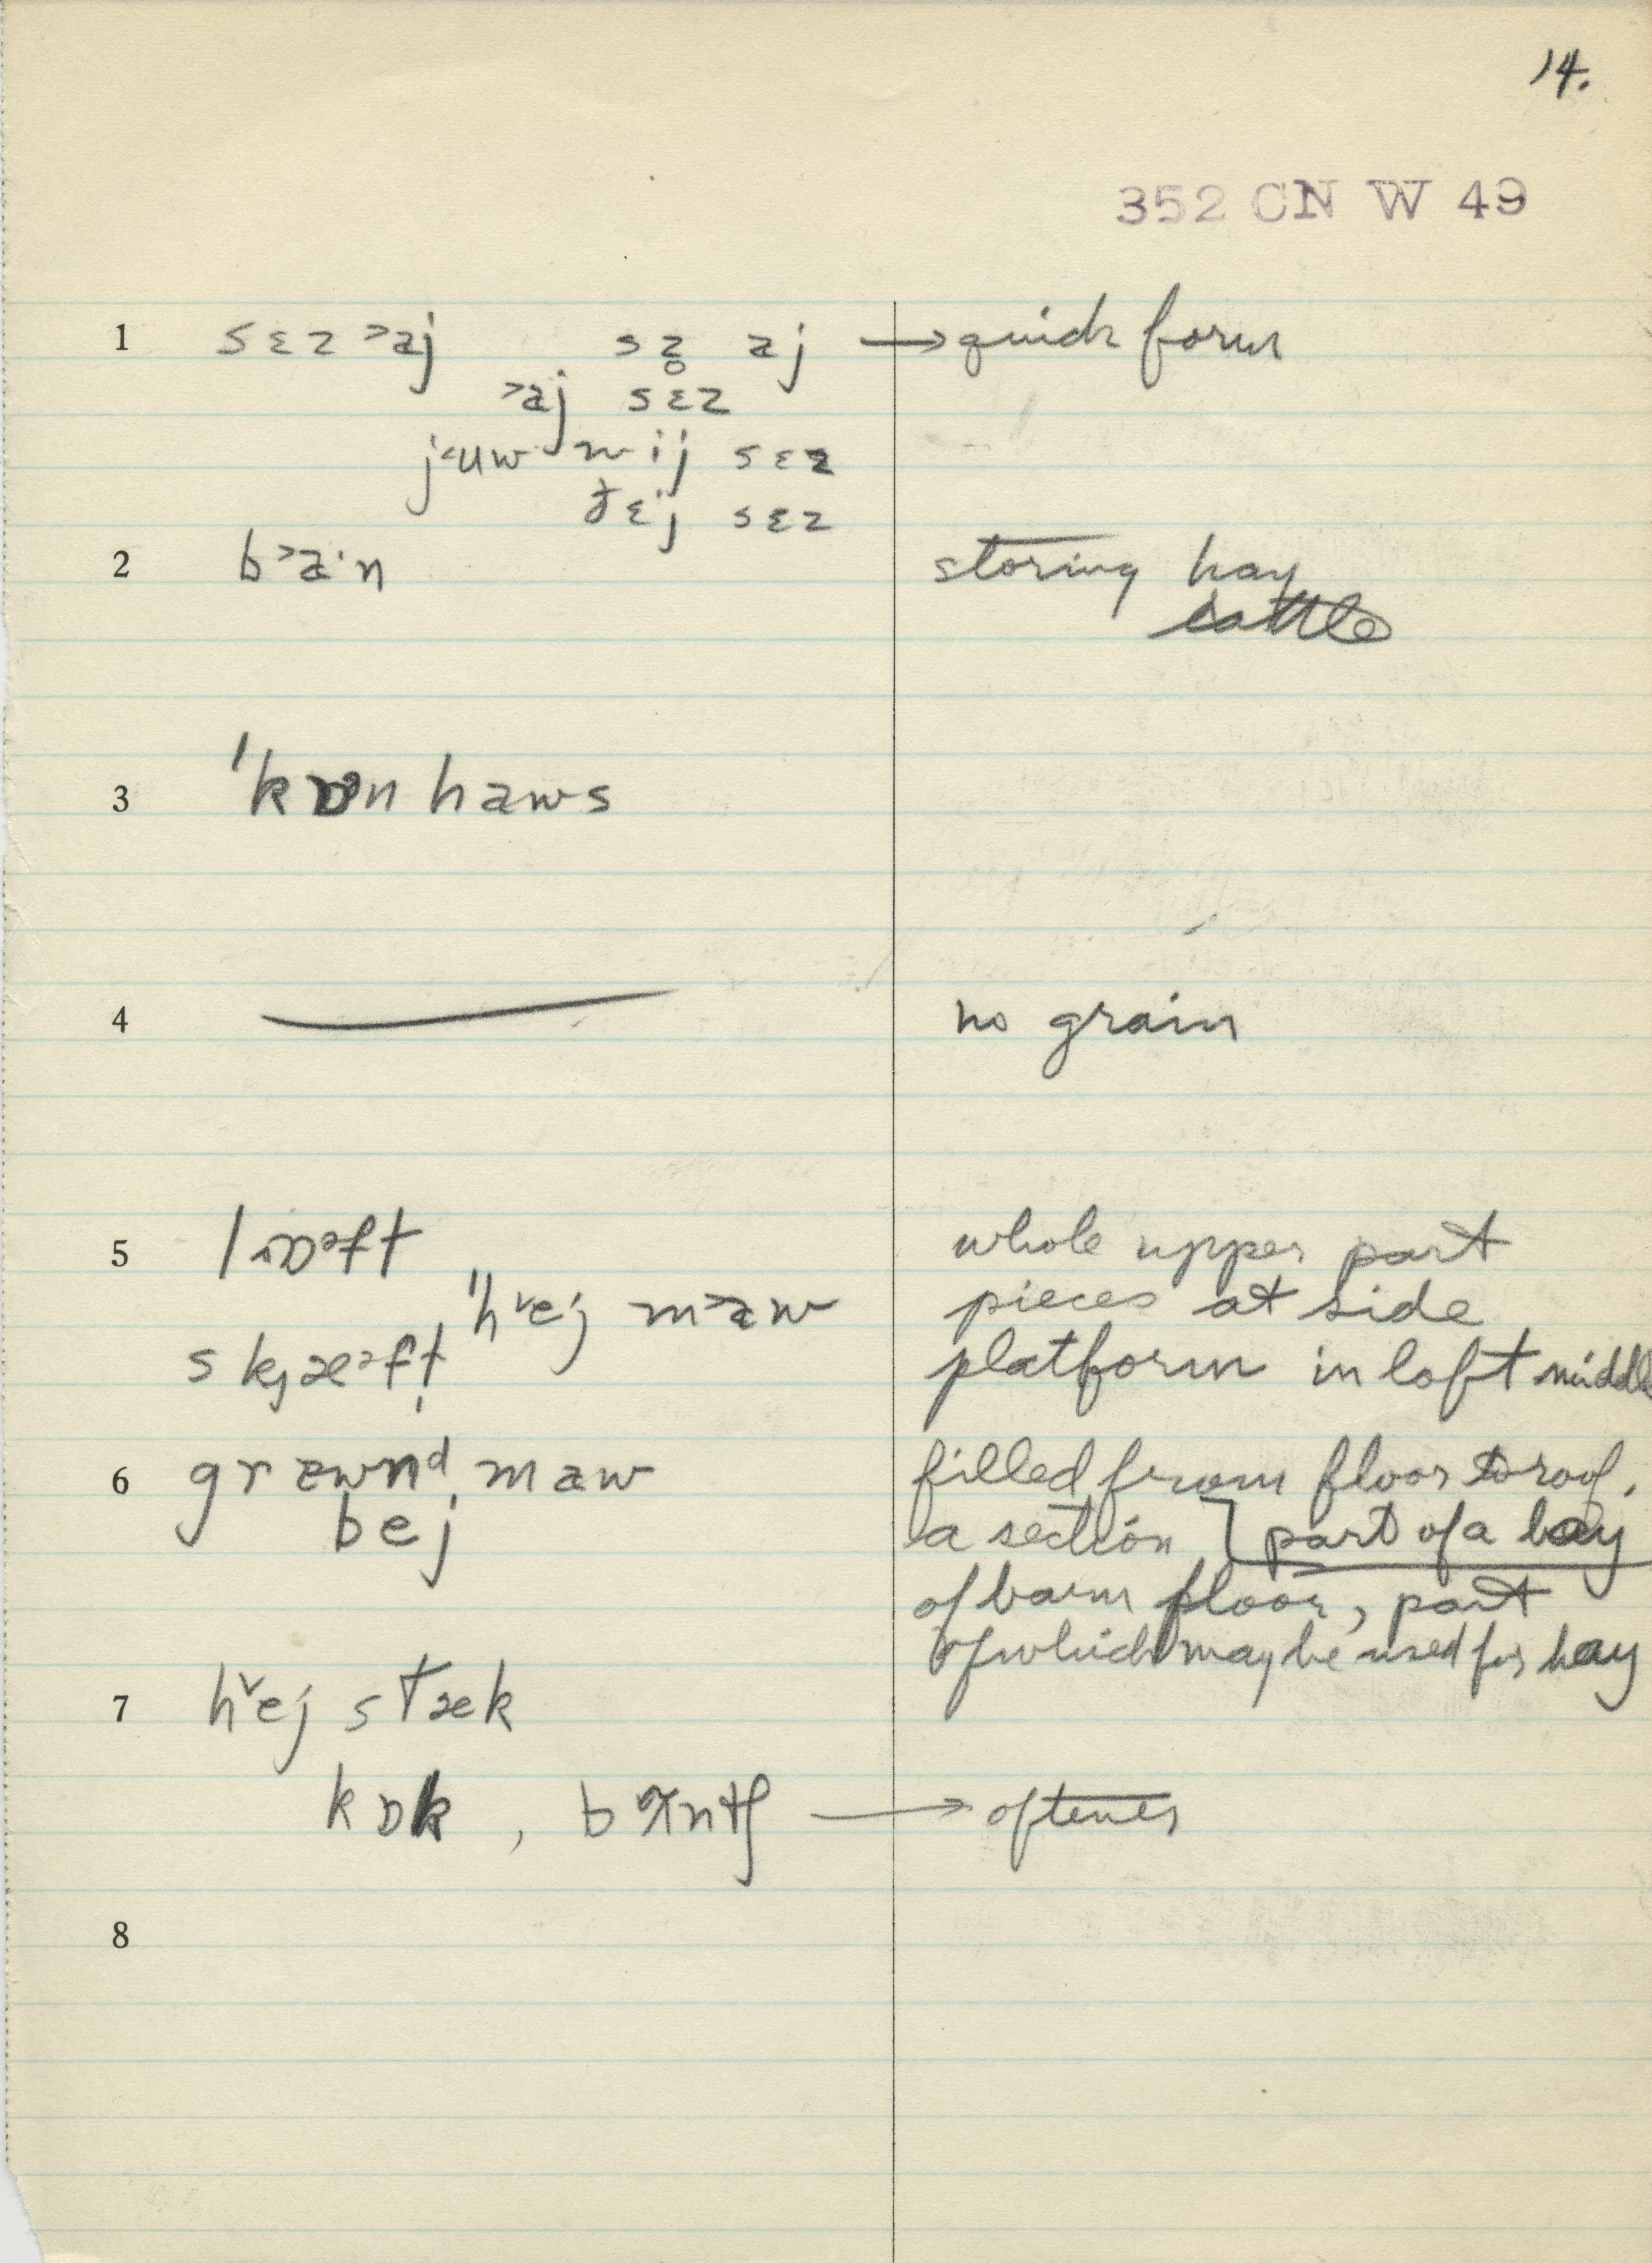 14.
352 CN W 49
1 sɛz ˃aj sz̥ aj → quick form
˃aj sɛz
j˂uw n ij sɛz
ðɛj sɛz
2 b˃a·n storing hay
cattle
3 'kɒn haws
4 no grain
5 lɒᵊft whole upper part
"h˅ej m˃aw pieces at side
skjæᵊft platform in loft middle
6 grawnᵈ maw filled from floor to roof.
bej a section ] part of a bay
of barn floor, part
of which may be used for hay
7 h˅ej stæk
kɒk , → oftener
8